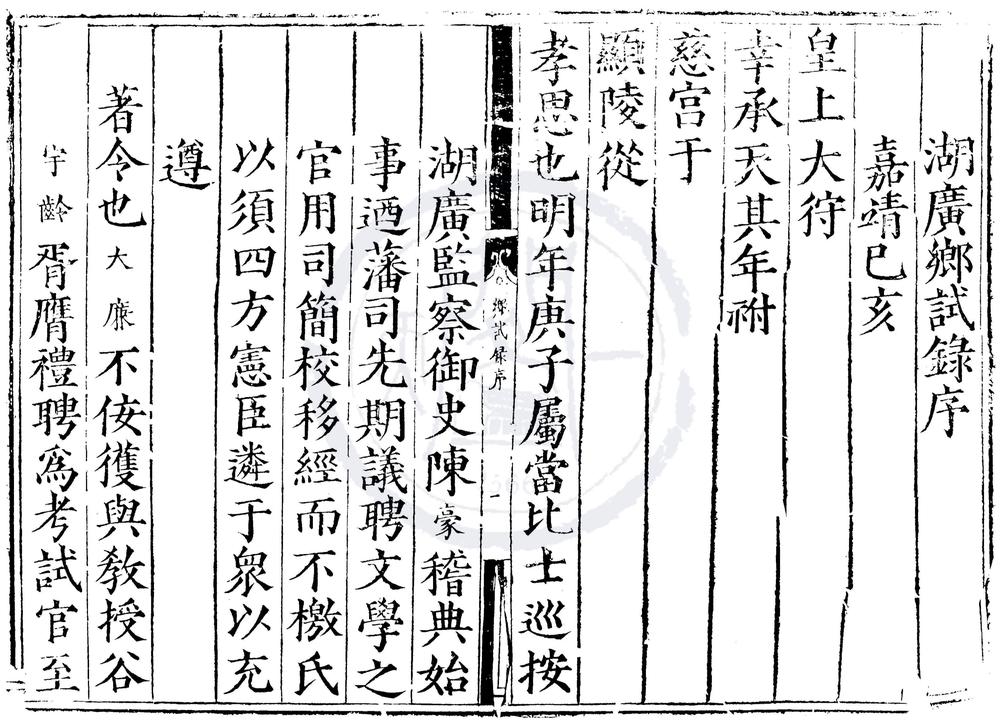 湖廣鄉試錄序
嘉靖己亥
皇上大狩
幸承天其年祔
慈宫于
顯陵從
孝思也明年庚子屬當比士巡按
鄉試錄序
一
湖廣監察御史陳豪稽典始
事迺藩司先期議聘文學之
官用司簡校移經而不檄氏
以須四方憲臣遴于衆以充
遵
著令也大廉不佞獲與教授谷
宇齡胥膺禮聘爲考試官至